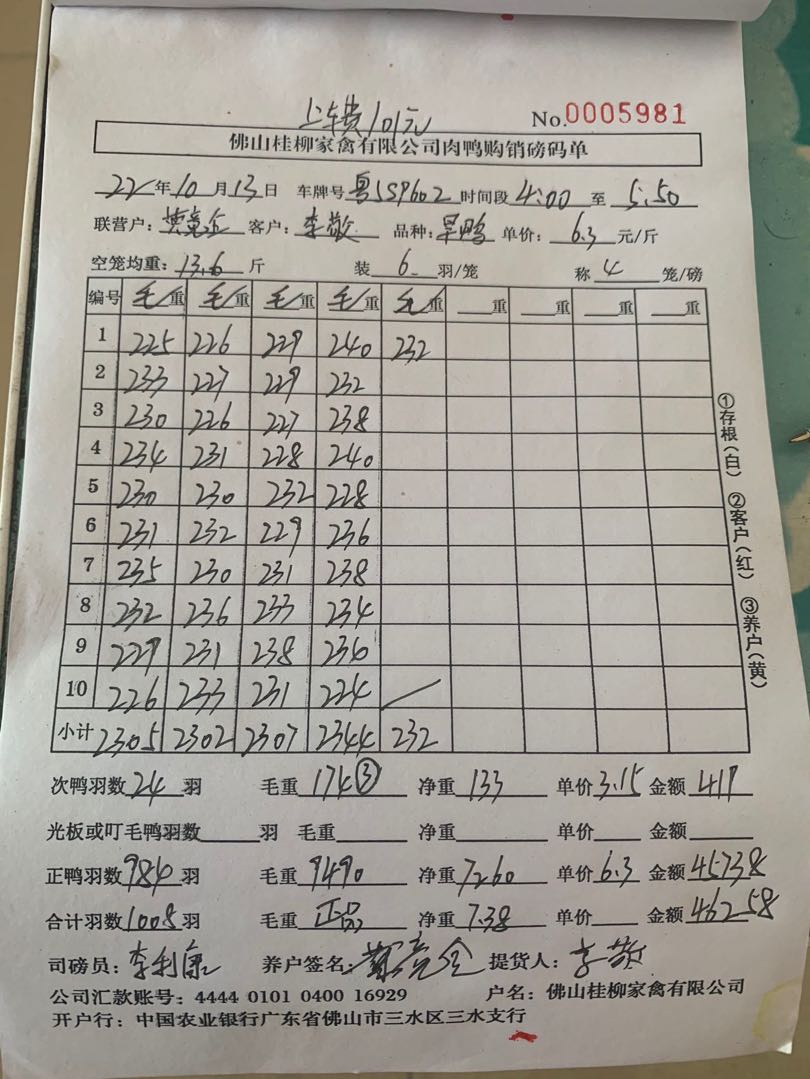 上车费101元
No.0005981
佛山桂柳家禽有限公司肉鸭购销磅码单
22年10月13日 车牌号 粤JS9602 时间段 4:00 至 5:50
联营户: 客户: 李敬 品种: 旱鸭 单价: 6.3 元/斤
空笼均重: 13.6 斤 装 6 羽/笼 称 4 笼/磅
编号 毛重 毛重 毛重 毛重 毛重 重 重 重 重
1 225 226 229 240 232
2 233 227 229 232
3 230 226 227 238
4 234 231 228 240
5 230 230 232 228
6 231 232 229 236
7 235 230 231 238
8 232 236 233 234
9 229 231 238 236
10 226 233 231 224
小计 2305 2302 2307 2344 232
次鸭羽数 24 羽 毛重 174③ 净重 133 单价 3.15 金额 419
光板或叮毛鸭羽数 羽 毛重 净重 单价 金额
正鸭羽数 984 羽 毛重 9490 净重 7260 单价 6.3 金额 45738
合计羽数 1008 羽 毛重 正品 净重 7.38 单价 金额 46258
司磅员: 李利康 养户签名: 提货人: 李敬
公司汇款账号: 4444 0101 0400 16929 户名: 佛山桂柳家禽有限公司
开户行: 中国农业银行广东省佛山市三水区三水支行
①存根(白) ②客户(红) ③养户(黄)